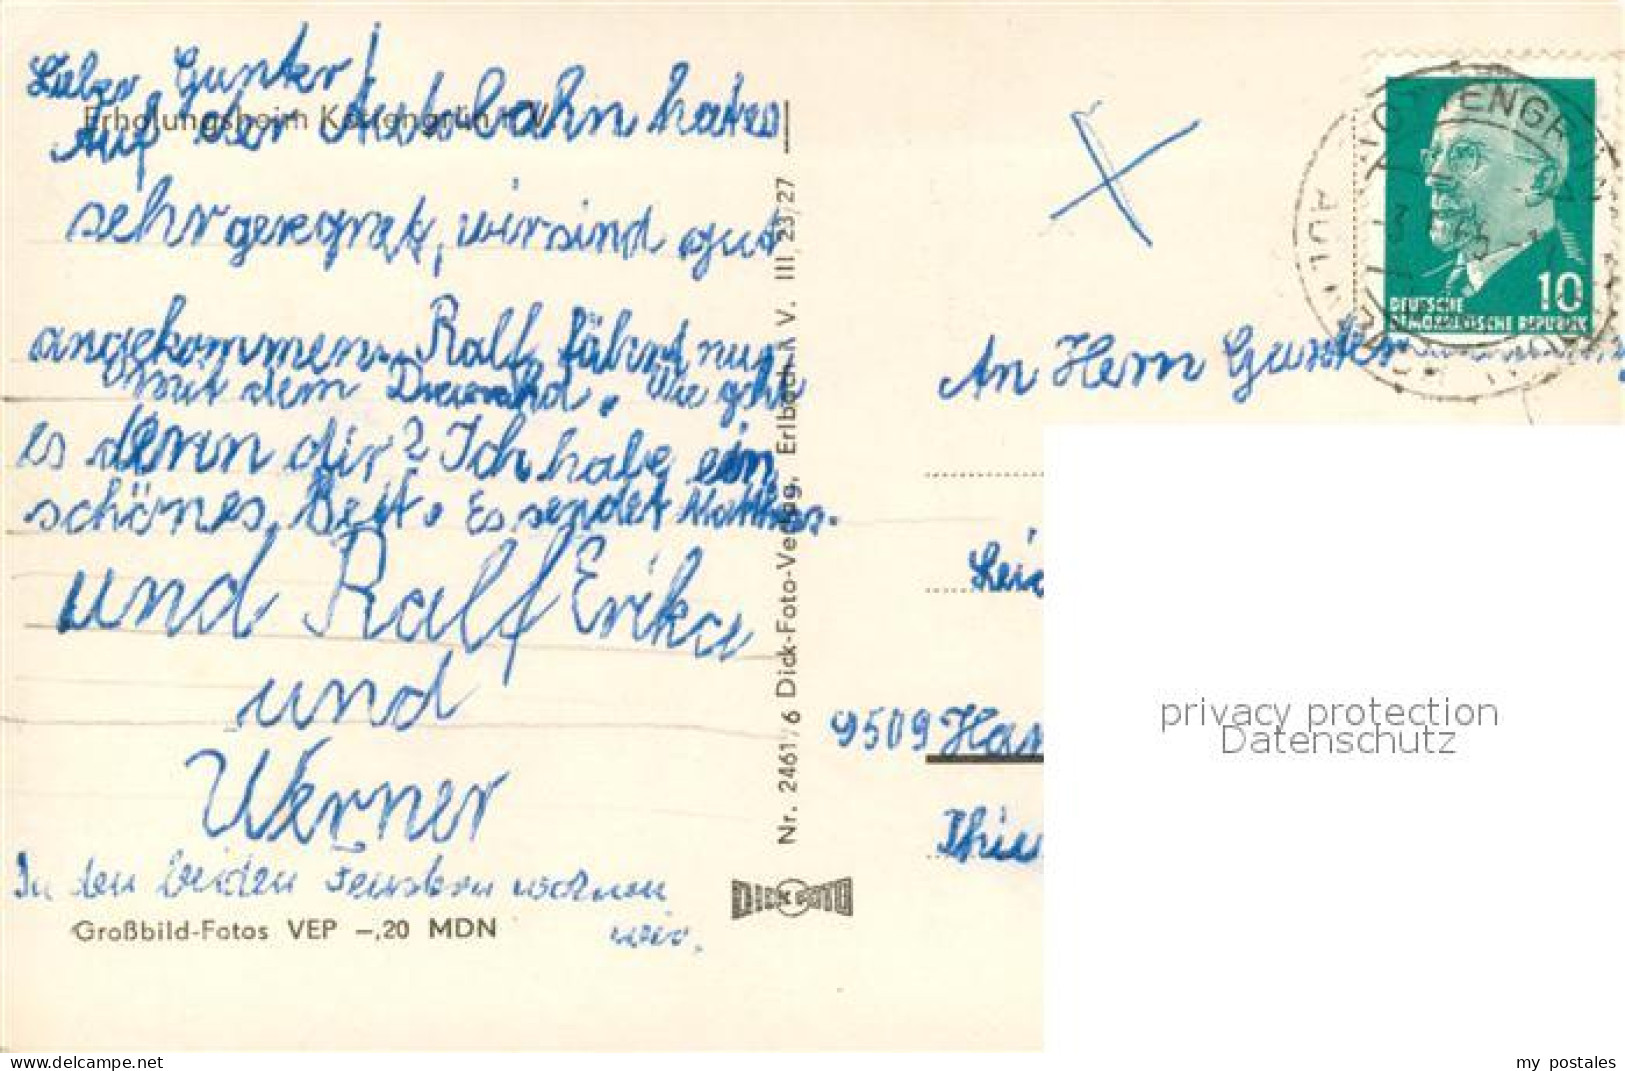 Lieber Gunter!
Erholungsheim Kottengrün i. V.
Auf der Autobahn hat es
sehr geregnet, wir sind gut
angekommen. Ralf fährt nur
mit dem Dreirad. Wie geht
es denn dir? Ich habe ein
schönes Bett. Es sendet Matthias.
und Ralf Erika
und
Werner
In den beiden Fenstern wohnen
wir.
Großbild-Fotos VEP –,20 MDN
Nr. 2461/6 Dick-Foto-Verlag, Erlbach i. V. III 23/27
DICK FOTO
DEUTSCHE
DEMOKRATISCHE REPUBLIK
10
An Herrn Gunter
9509
privacy protection
Datenschutz
www.ansichtskarten-center.de
my_postales